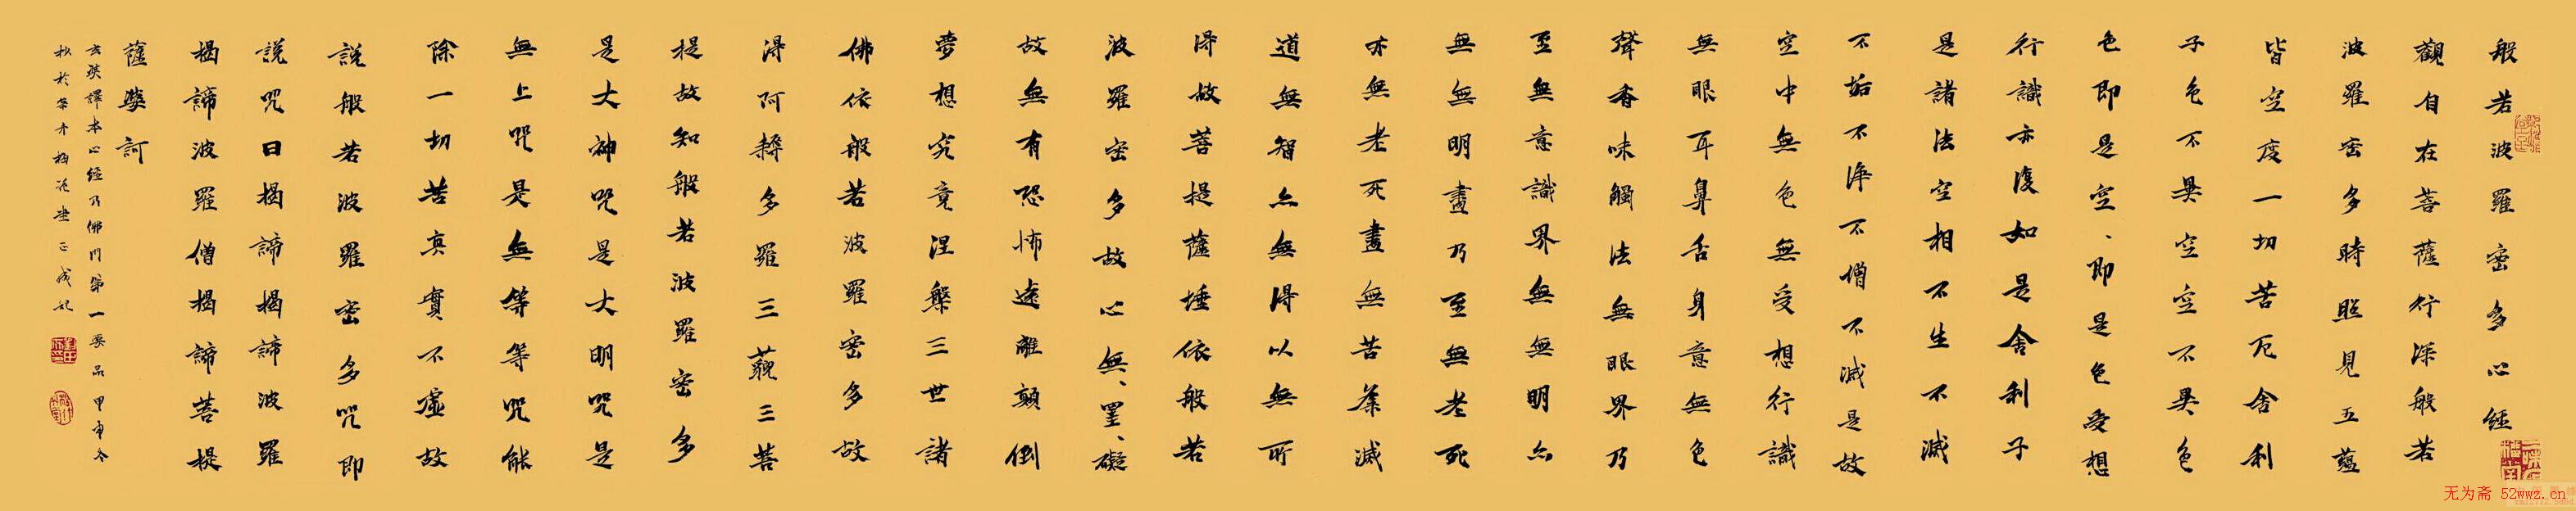 般若波羅密多心經
觀自在菩薩行深般若
波羅密多時照見五蘊
皆空度一切苦厄舍利
子色不異空空不異色
色即是空、即是色受想
行識亦復如是舍利子
是諸法空相不生不滅
不垢不淨不增不減是故
空中無色無受想行識
無眼耳鼻舌身意無色
聲香味觸法無眼界乃
至無意識界無無明亦
無無明盡乃至無老死
亦無老死盡無苦集滅
道無智亦無得以無所
得故菩提薩埵依般若
波羅密多故心無、罣、礙
故無有恐怖遠離顛倒
夢想究竟涅槃三世諸
佛依般若波羅密多故
得阿耨多羅三藐三菩
提故知般若波羅密多
是大神咒是大明咒是
無上咒是無等等咒能
除一切苦真實不虛故
說般若波羅密多咒即
說咒曰揭諦揭諦波羅
揭諦波羅僧揭諦菩提
薩婆訶
玄奘譯本心經乃佛門第一要品甲申冬
无为斋 52wwz.cn